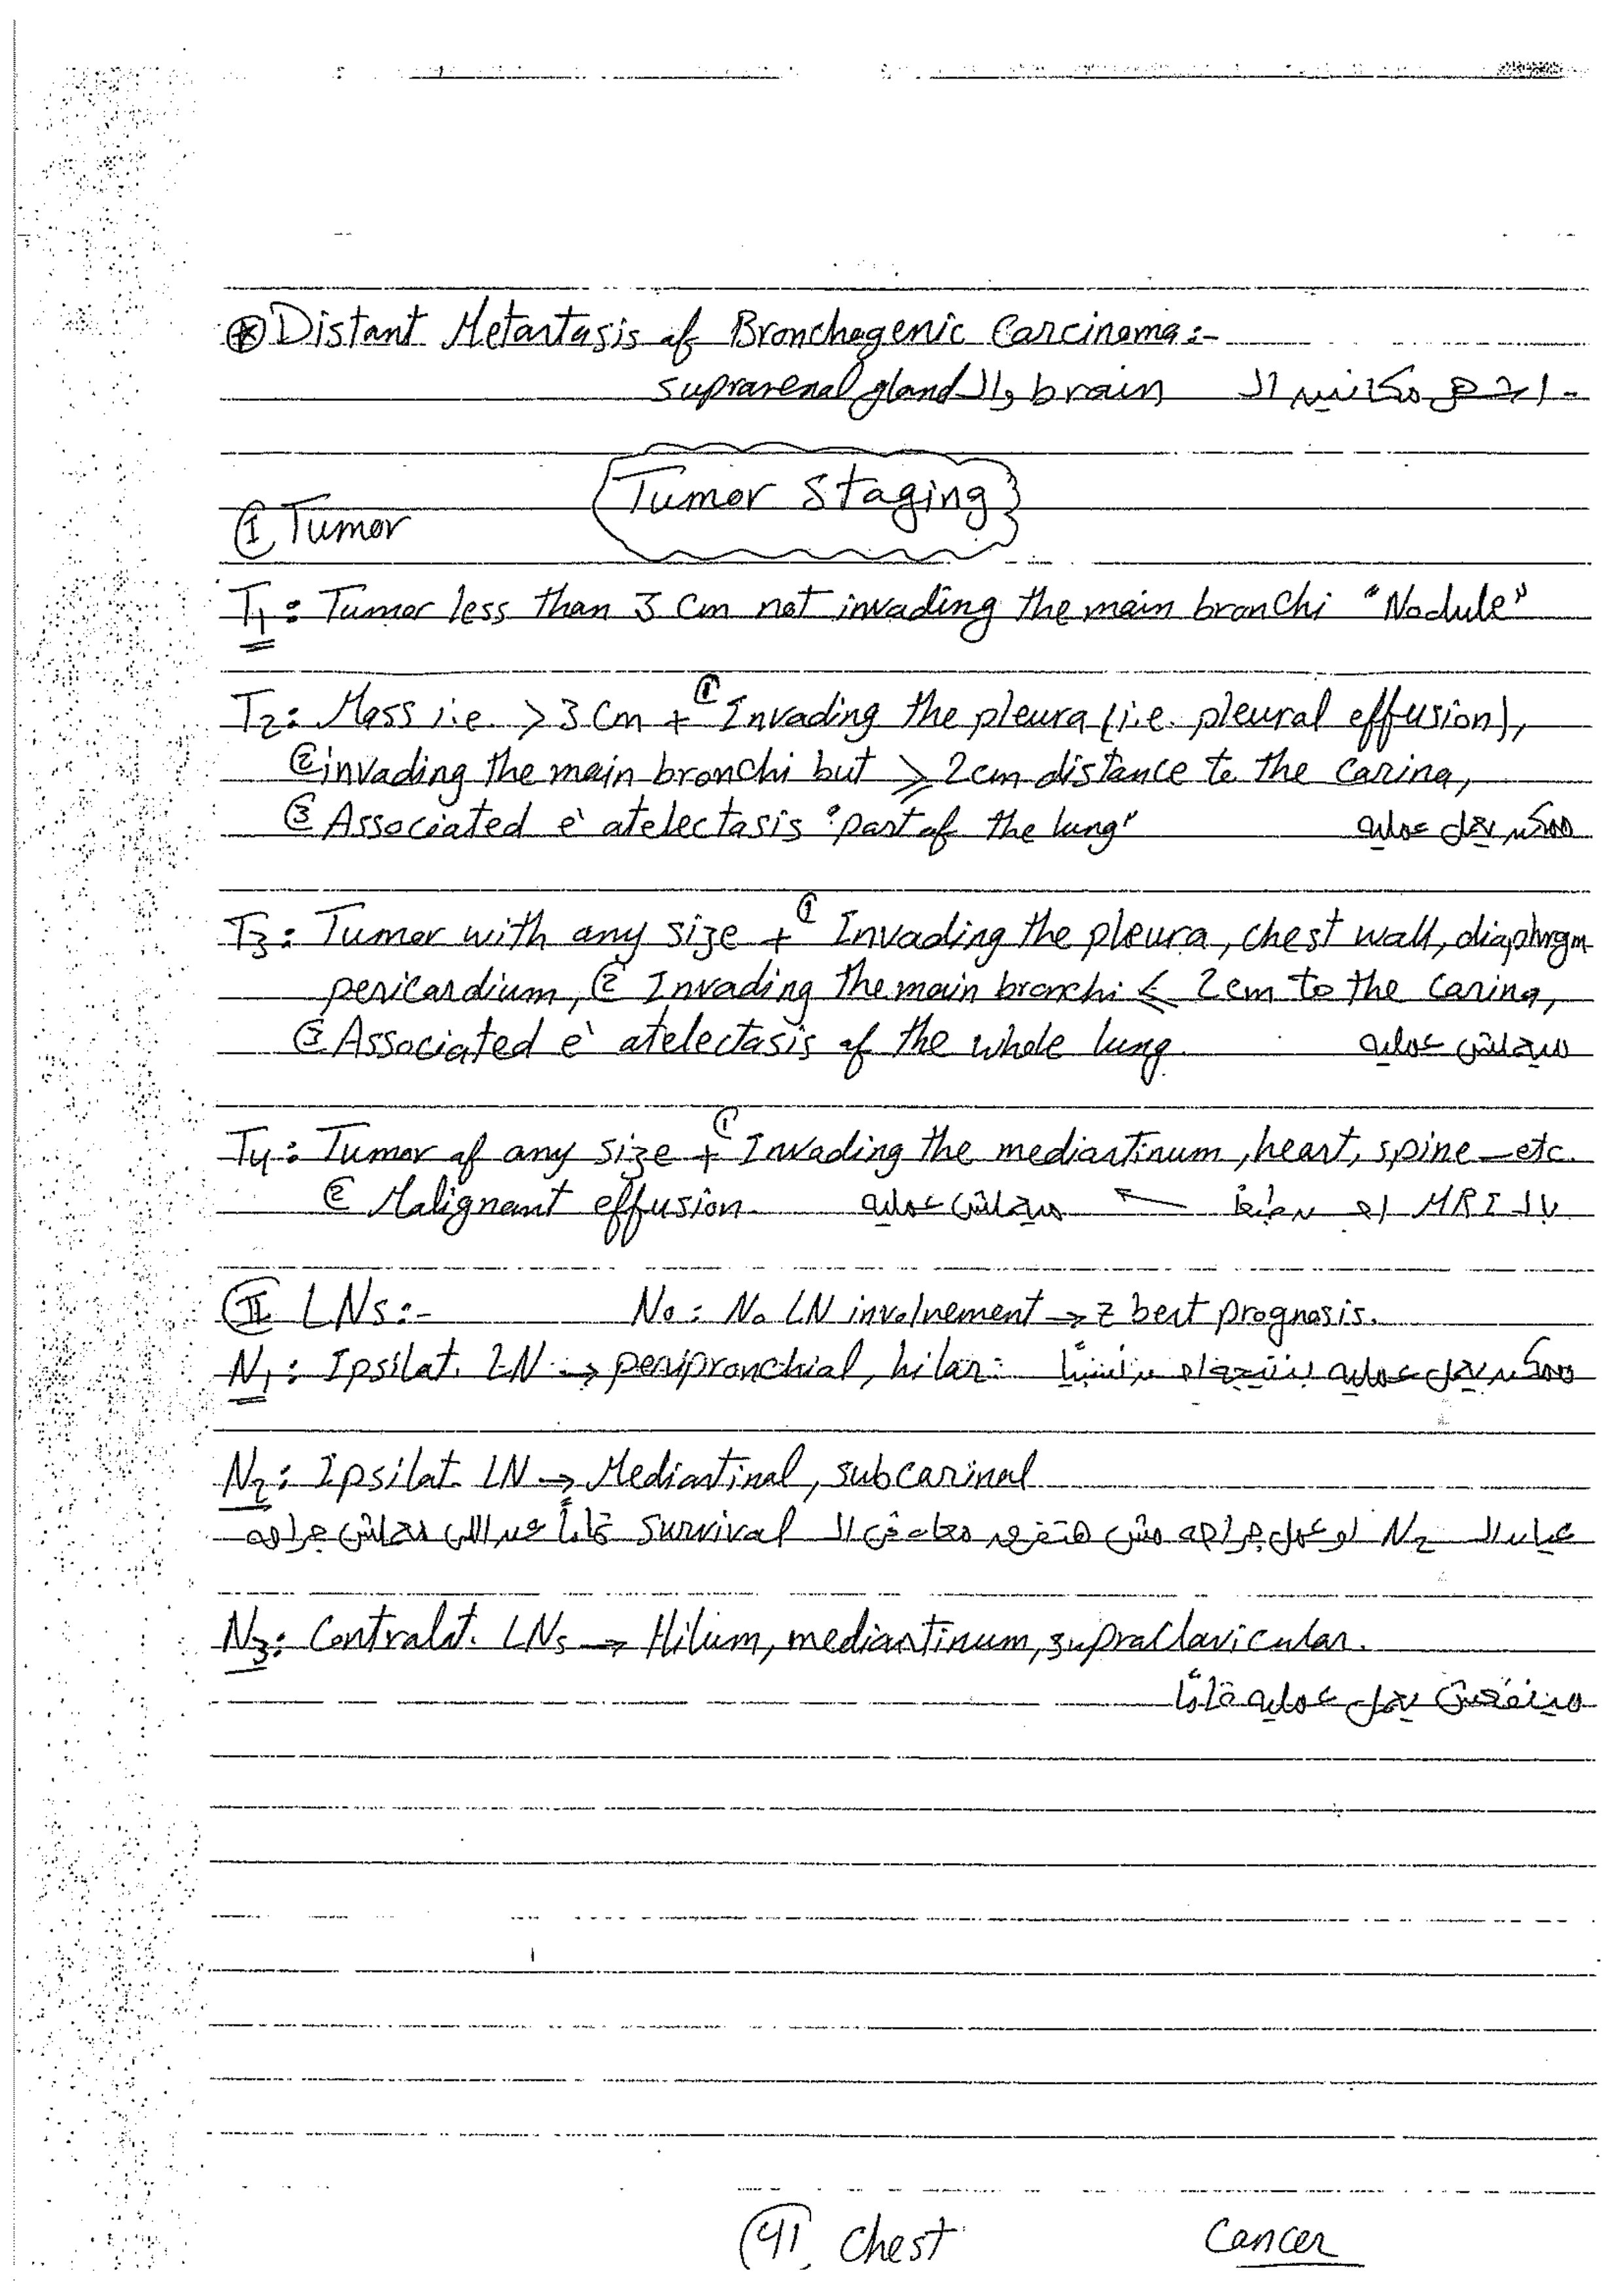 ⊛ Distant Metastasis of Bronchogenic Carcinoma:-
- اشهر مكانين الـ brain والـ suprarenal gland
Tumor Staging
Ⓘ Tumor
T1: Tumor less than 3 cm not invading the main bronchi "Nodule"
T2: Mass i.e. > 3 cm + ① Invading the pleura (i.e. pleural effusion),
② invading the main bronchi but ≥ 2cm distance to the carina,
③ Associated e` atelectasis "part of the lung" ممكن يعمل عمليه
T3: Tumor with any size + ① Invading the pleura, chest wall, diaphrgm
pericardium, ② Invading the main bronchi ≤ 2cm to the carina,
③ Associated e` atelectasis of the whole lung. ميعملش عمليه
T4: Tumor of any size + ① Invading the mediastinum, heart, spine _ etc.
② Malignant effusion. ميعملش عمليه ← بالـ MRI او
Ⓘ︎I LNs:- N0: No LN involvement → z best prognosis.
N1: Ipsilat. LN → peripronchial, hilar: ممكن يعمل عمليه
N2: Ipsilat. LN → Mediastinal, subcarinal
الـ N2 لو عمل جراحه مش هتفرق معاه في الـ survival تماماً عن اللي معملش جراحه
N3: Contralat. LNs → Hilum, mediastinum, supraclavicular.
مينفعش يعمل عمليه تماماً
41 Chest Cancer